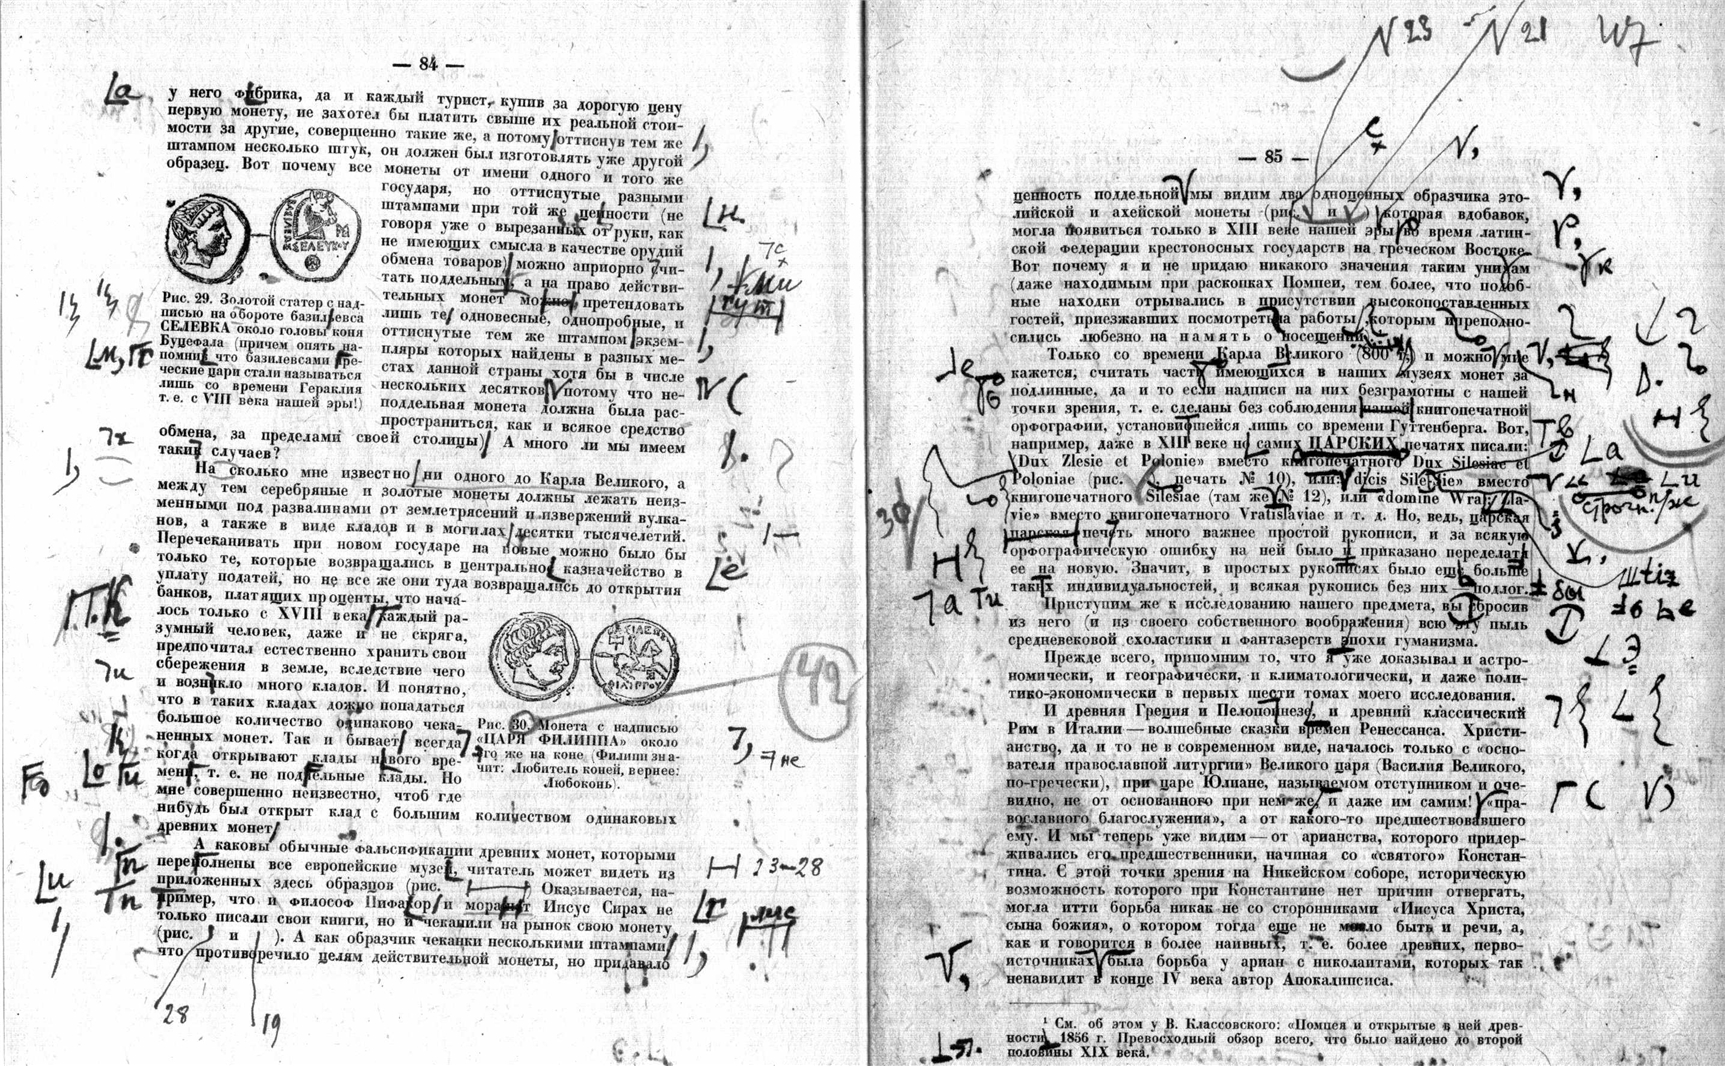 — 84 —
у него фибрика, да и каждый турист, купив за дорогую цену
первую монету, не захотел бы платить свыше их реальной стои-
мости за другие, совершенно такие же, а потому оттиснув тем же
штампом несколько штук, он должен был изготовлять уже другой
образец. Вот почему все монеты от имени одного и того же
государя, но оттиснутые разными
штампами при той же ценности (не
говоря уже о вырезанных от руки, как
не имеющих смысла в качестве орудий
обмена товаров) можно априорно считать
тать поддельным, а на право действи-
тельных монет можно претендовать
лишь те одновесные, однопробные, и
оттиснутые тем же штампом экзем-
пляры которых найдены в разных ме-
стах данной страны хотя бы в числе
нескольких десятков потому что не-
поддельная монета должна была рас-
пространиться, как и всякое средство
Рис. 29. Золотой статер с над-
писью на обороте базилевса
СЕЛЕВКА около головы коня
Буцефала (причем опять на-
помни что базилевсами гре-
ческие цари стали называться
лишь со времени Гераклия
т. е. с VIII века нашей эры!)
обмена, за пределами своей столицы) А много ли мы имеем
таких случаев?
На сколько мне известно ни одного до Карла Великого, а
между тем серебряные и золотые монеты должны лежать неиз-
менными под развалинами от землетрясений и извержений вулка-
нов, а также в виде кладов и в могилах десятки тысячелетий.
Перечеканивать при новом государе на новые можно было бы
только те, которые возвращались в центральное казначейство в
уплату податей, но не все же они туда возвращались до открытия
банков, платящих проценты, что нача-
лось только с XVIII века каждый ра-
зумный человек, даже и не скряга,
предпочитал естественно хранить свои
сбережения в земле, вследствие чего
и возникло много кладов. И понятно,
что в таких кладах должно попадаться
большое количество одинаково чека-
ненных монет. Так и бывает всегда
когда открывают клады нового вре-
мени, т. е. не поддельные клады. Но
мне совершенно неизвестно, чтоб где
нибудь был открыт клад с большим количеством одинаковых
древних монет
Рис. 30. Монета с надписью
«ЦАРЯ ФИЛИППА» около
его же на коне (Филипп зна-
чит: Любитель коней, вернее:
Любоконь).
А каковы обычные фальсификации древних монет, которыми
переполнены все европейские музеи, читатель может видеть из
приложенных здесь образцов (рис. Оказывается, на-
пример, что и философ Пифагор и моралист Иисус Сирах не
только писали свои книги, но и чеканили на рынок свою монету
(рис. и ). А как образчик чеканки несколькими штампами
что противоречило целям действительной монеты, но придавало
28 19
42
23—28
N 23 N 21
— 85 —
ценность поддельной мы видим два одноценных образчика это-
лийской и ахейской монеты (рис. и которая вдобавок,
могла появиться только в XIII веке нашей эры во время латин-
ской Федерации крестоносных государств на греческом Востоке.
Вот почему я и не придаю никакого значения таким уникам
(даже находимым при раскопках Помпеи, тем более, что подоб-
ные находки отрывались в присутствии высокопоставленных
гостей, приезжавших посмотреть на работы которым и преподно-
сились любезно на память о посещении
Только со времени Карла Великого (800 г.) и можно мне
кажется, считать часть имеющихся в наших музеях монет за
подлинные, да и то если надписи на них безграмотны с нашей
точки зрения, т. е. сделаны без соблюдения нашей книгопечатной
орфографии, установившейся лишь со времени Гуттенберга. Вот,
например, даже в XIII веке на самих ЦАРСКИХ печатях писали:
«Dux Zlesie et Polonie» вместо книгопечатного Dux Silesiae et
Poloniae (рис. печать № 10), или dicis Silesie» вместо
книгопечатного Silesiae (там же № 12), или «domine Wra
vie» вместо книгопечатного Vratislaviae и т. д. Но, ведь, царская
царская печать много важнее простой рукописи, и за всякую
орфографическую ошибку на ней было и приказано переделать
ее на новую. Значит, в простых рукописях было еще больше
таких индивидуальностей, и всякая рукопись без них — подлог.
Приступим же к исследованию нашего предмета, вы сбросив
из него (и из своего собственного воображения) всю эту пыль
средневековой схоластики и фантазерств эпохи гуманизма.
Прежде всего, припомним то, что я уже доказывал и астро-
номически, и географически, и климатологически, и даже поли-
тико-экономически в первых шести томах моего исследования.
И древняя Греция и Пелопоннезе, и древний классический
Рим в Италии — волшебные сказки времен Ренессанса. Христи-
анство, да и то не в современном виде, началось только с «осно-
вателя православной литургии» Великого царя (Василия Великого,
по-гречески), при царе Юлиане, называемом отступником и оче-
видно, не от основанного при нем же, и даже им самим! «пра-
вославного благослужения», а от какого-то предшествовавшего
ему. И мы теперь уже видим — от арианства, которого придер-
живались его предшественники, начиная со «святого» Констан-
тина. С этой точки зрения на Никейском соборе, историческую
возможность которого при Константине нет причин отвергать,
могла итти борьба никак не со сторонниками «Иисуса Христа,
сына божия», о котором тогда еще не могло быть и речи, а,
как и говорится в более наивных, т. е. более древних, перво-
источниках была борьба у ариан с николаитами, которых так
ненавидит в конце IV века автор Апокалипсиса.
¹ См. об этом у В. Классовского: «Помпея и открытые в ней древ-
ности 1856 г. Превосходный обзор всего, что было найдено до второй
половины XIX века.